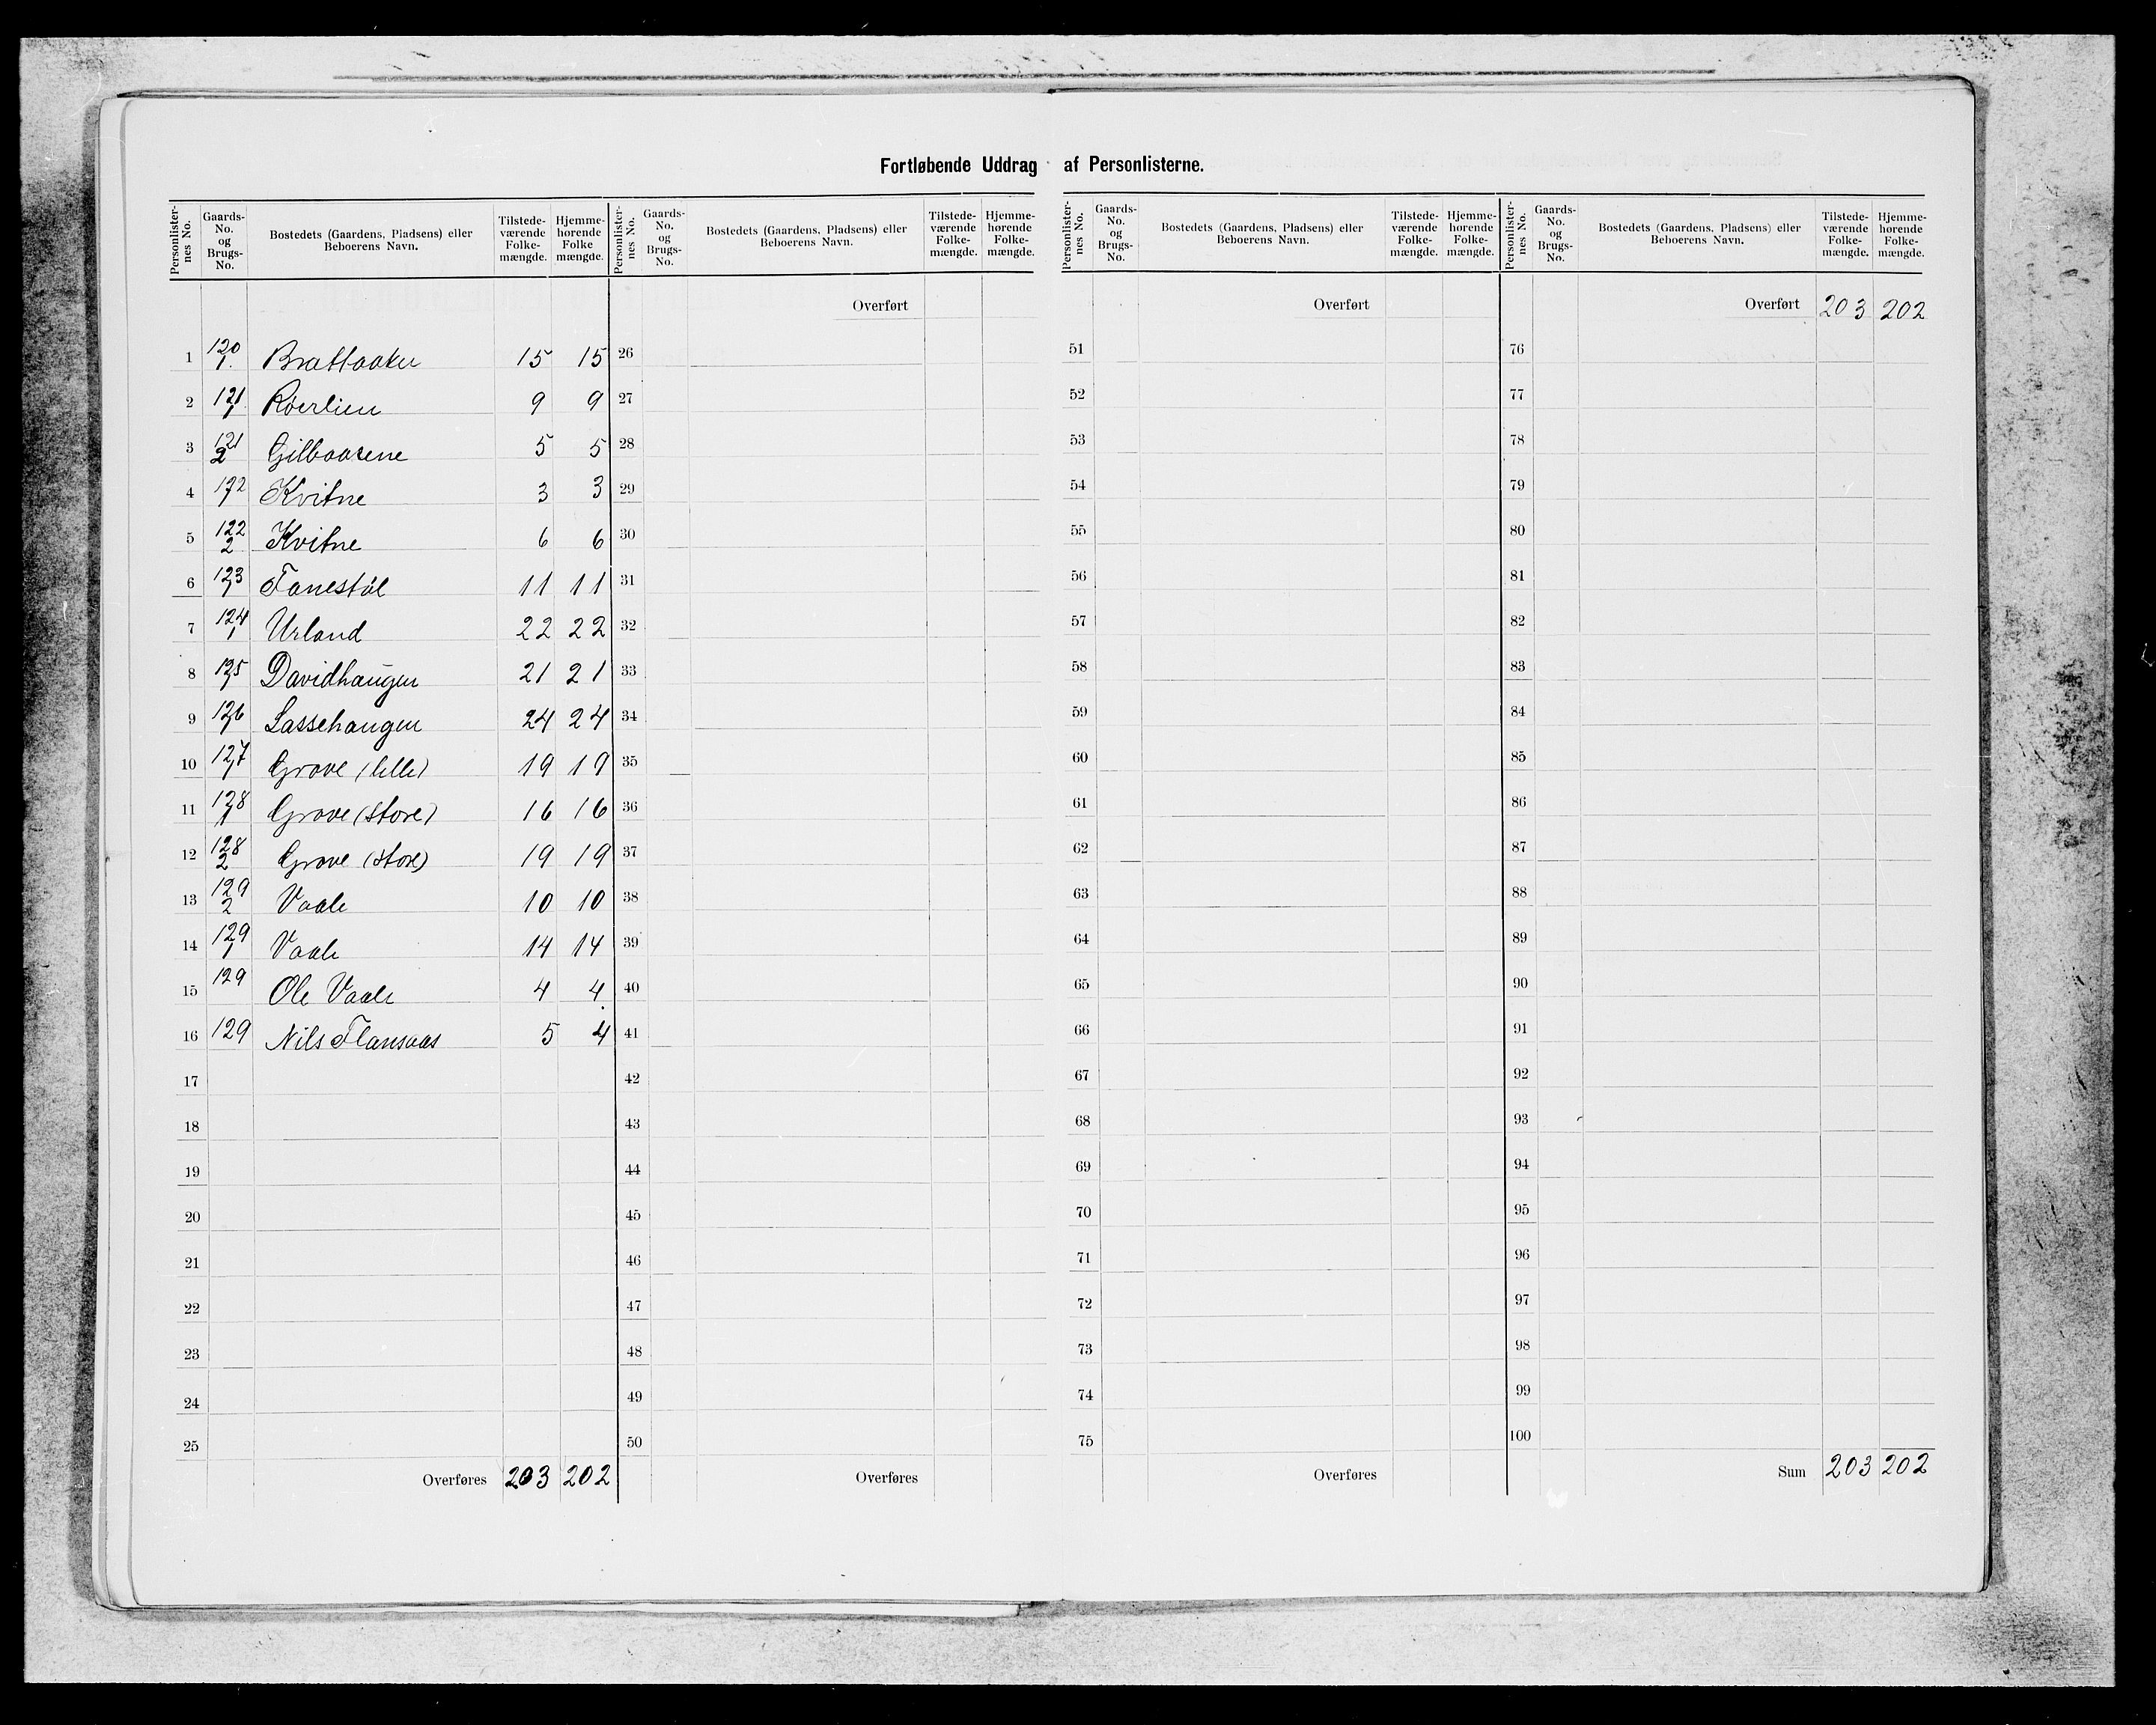 Fortløbende Uddrag af Personlisterne.
Personlister-nes No. | Gaards-No. og Brugs-No. | Bostedets (Gaardens, Pladsens) eller Beboerens Navn. | Tilstede-værende Folke-mængde. | Hjemme-hørende Folke mængde.
1 120/1. Brattaaker 15 15
2 121/1 Röerlien 9 9
3 121/2 Gilbaasene 5 5
4 122/1 Kvitne 3 3
5 122/2 Kvitne 6 6
6 123/1 Fanestöl 11 11
7 124/1 Urland 22 22
8 125/1 Davidhaugen 21 21
9 126/1 Lassehaugen 24 24
10 127/1 Grove (lille) 19 19
11 128/1 Grove (store) 16 16
12 128/2 Grove (store) 19 19
13 129/2 Vaale 10 10
14 129/1 Vaale 14 14
15 129 Ole Vaale 4 4
16 129 Nils Flansaas 5 4
17
18
19
20
21
22
23
24
25
Overføres 203 202
Personlister-nes No. | Gaards-No. og Brugs-No. | Bostedets (Gaardens, Pladsens) eller Beboerens Navn. | Tilstede-værende Folke-mængde. | Hjemme-hørende Folke-mængde.
Overført
26
27
28
29
30
31
32
33
34
35
36
37
38
39
40
41
42
43
44
45
46
47
48
49
50
Overføres
Personlister-nes No. | Gaards-No. og Brugs-No. | Bostedets (Gaardens, Pladsens) eller Beboerens Navn. | Tilstede-værende Folke-mængde. | Hjemme-hørende Folke-mængde.
Overført
51
52
53
54
55
56
57
58
59
60
61
62
63
64
65
66
67
68
69
70
71
72
73
74
75
Overføres
Personlister-nes No. | Gaards-No. og Brugs-No. | Bostedets (Gaardens, Pladsens) eller Beboerens Navn. | Tilstede-værende Folke-mængde. | Hjemme-hørende Folke-mængde.
Overført 203 202
76
77
78
79
80
81
82
83
84
85
86
87
88
89
90
91
92
93
94
95
96
97
98
99
100
Sum 203 202